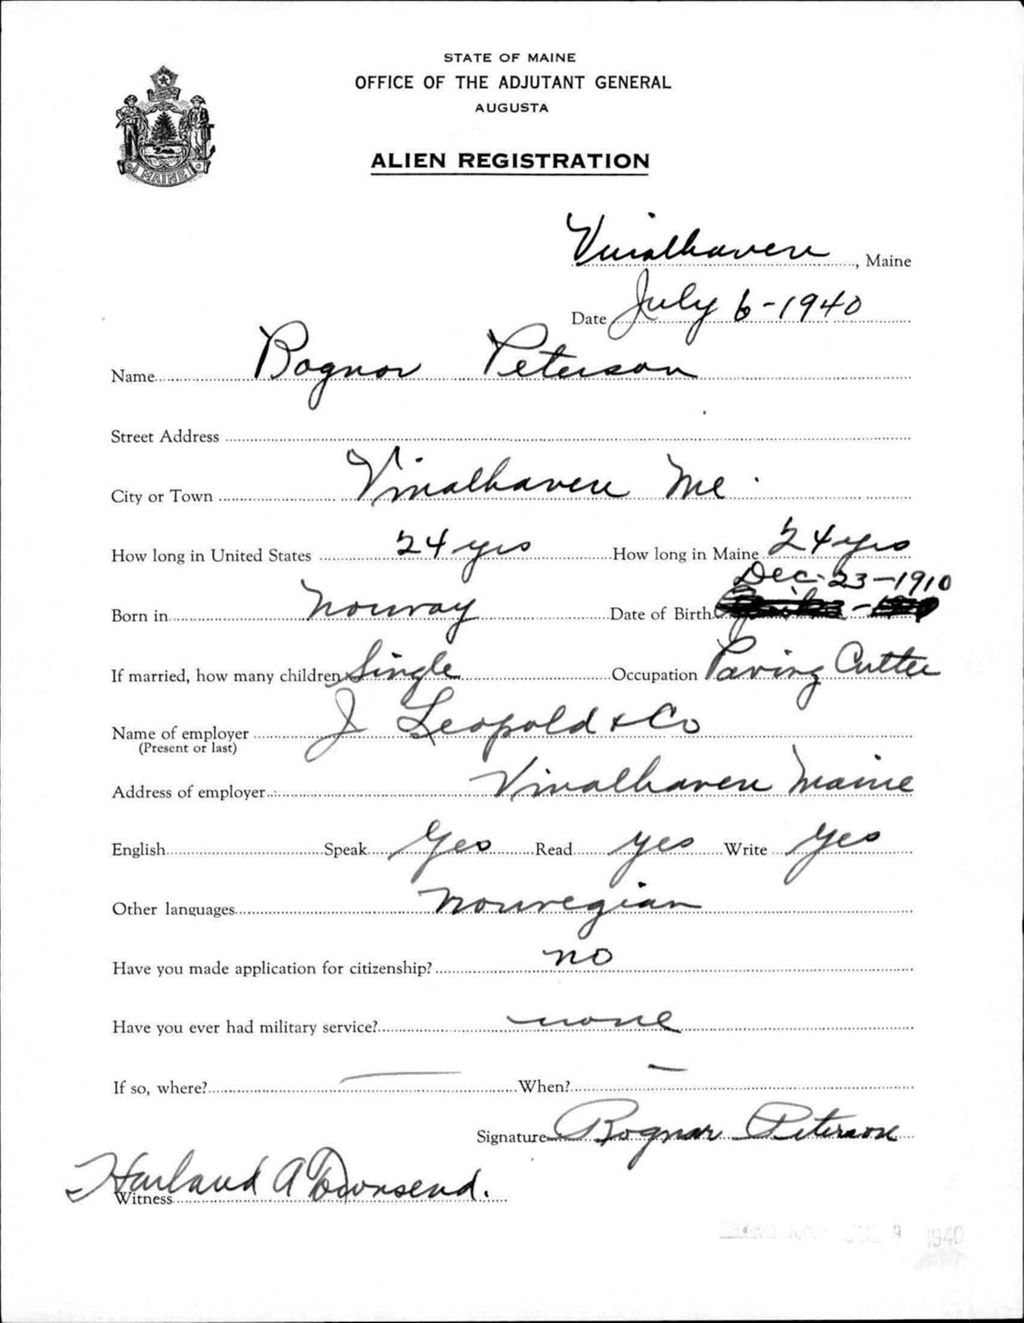 STATE OF MAINE
OFFICE OF THE ADJUTANT GENERAL
AUGUSTA
MAINE
ALIEN REGISTRATION
Vinalhaven, Maine
Date July 6-1940
Name Rognar Peterson
Street Address
City or Town Vinalhaven Me.
How long in United States 24 yrs How long in Maine 24 yrs
Dec-23-1910
Born in Norway Date of Birth
If married, how many children Single Occupation Paving Cutter
Name of employer J Leopold & Co
(Present or last)
Address of employer Vinalhaven Maine
English Speak Yes Read yes Write Yes
Other languages Norwegian
Have you made application for citizenship? no
Have you ever had military service? none
If so, where? — When? —
Signature Rognar Peterson
Witness Harland A Townsend.
1940